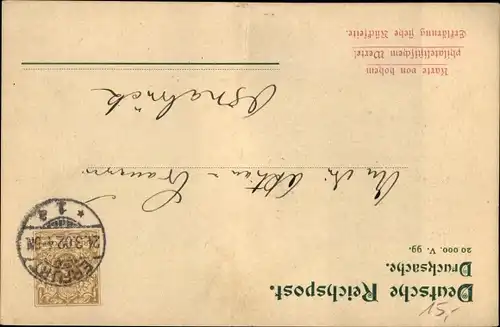 Deutsche Reichspost.
Drucksache.
20 000. V. 99.
Karte von hohem
philatelistischem Werte!
Erklärung siehe Rückseite.
An die Aktien - Brauerei
Osnabrück
ERFURT
24.3.02. 4-5N
* 1 a
15,-